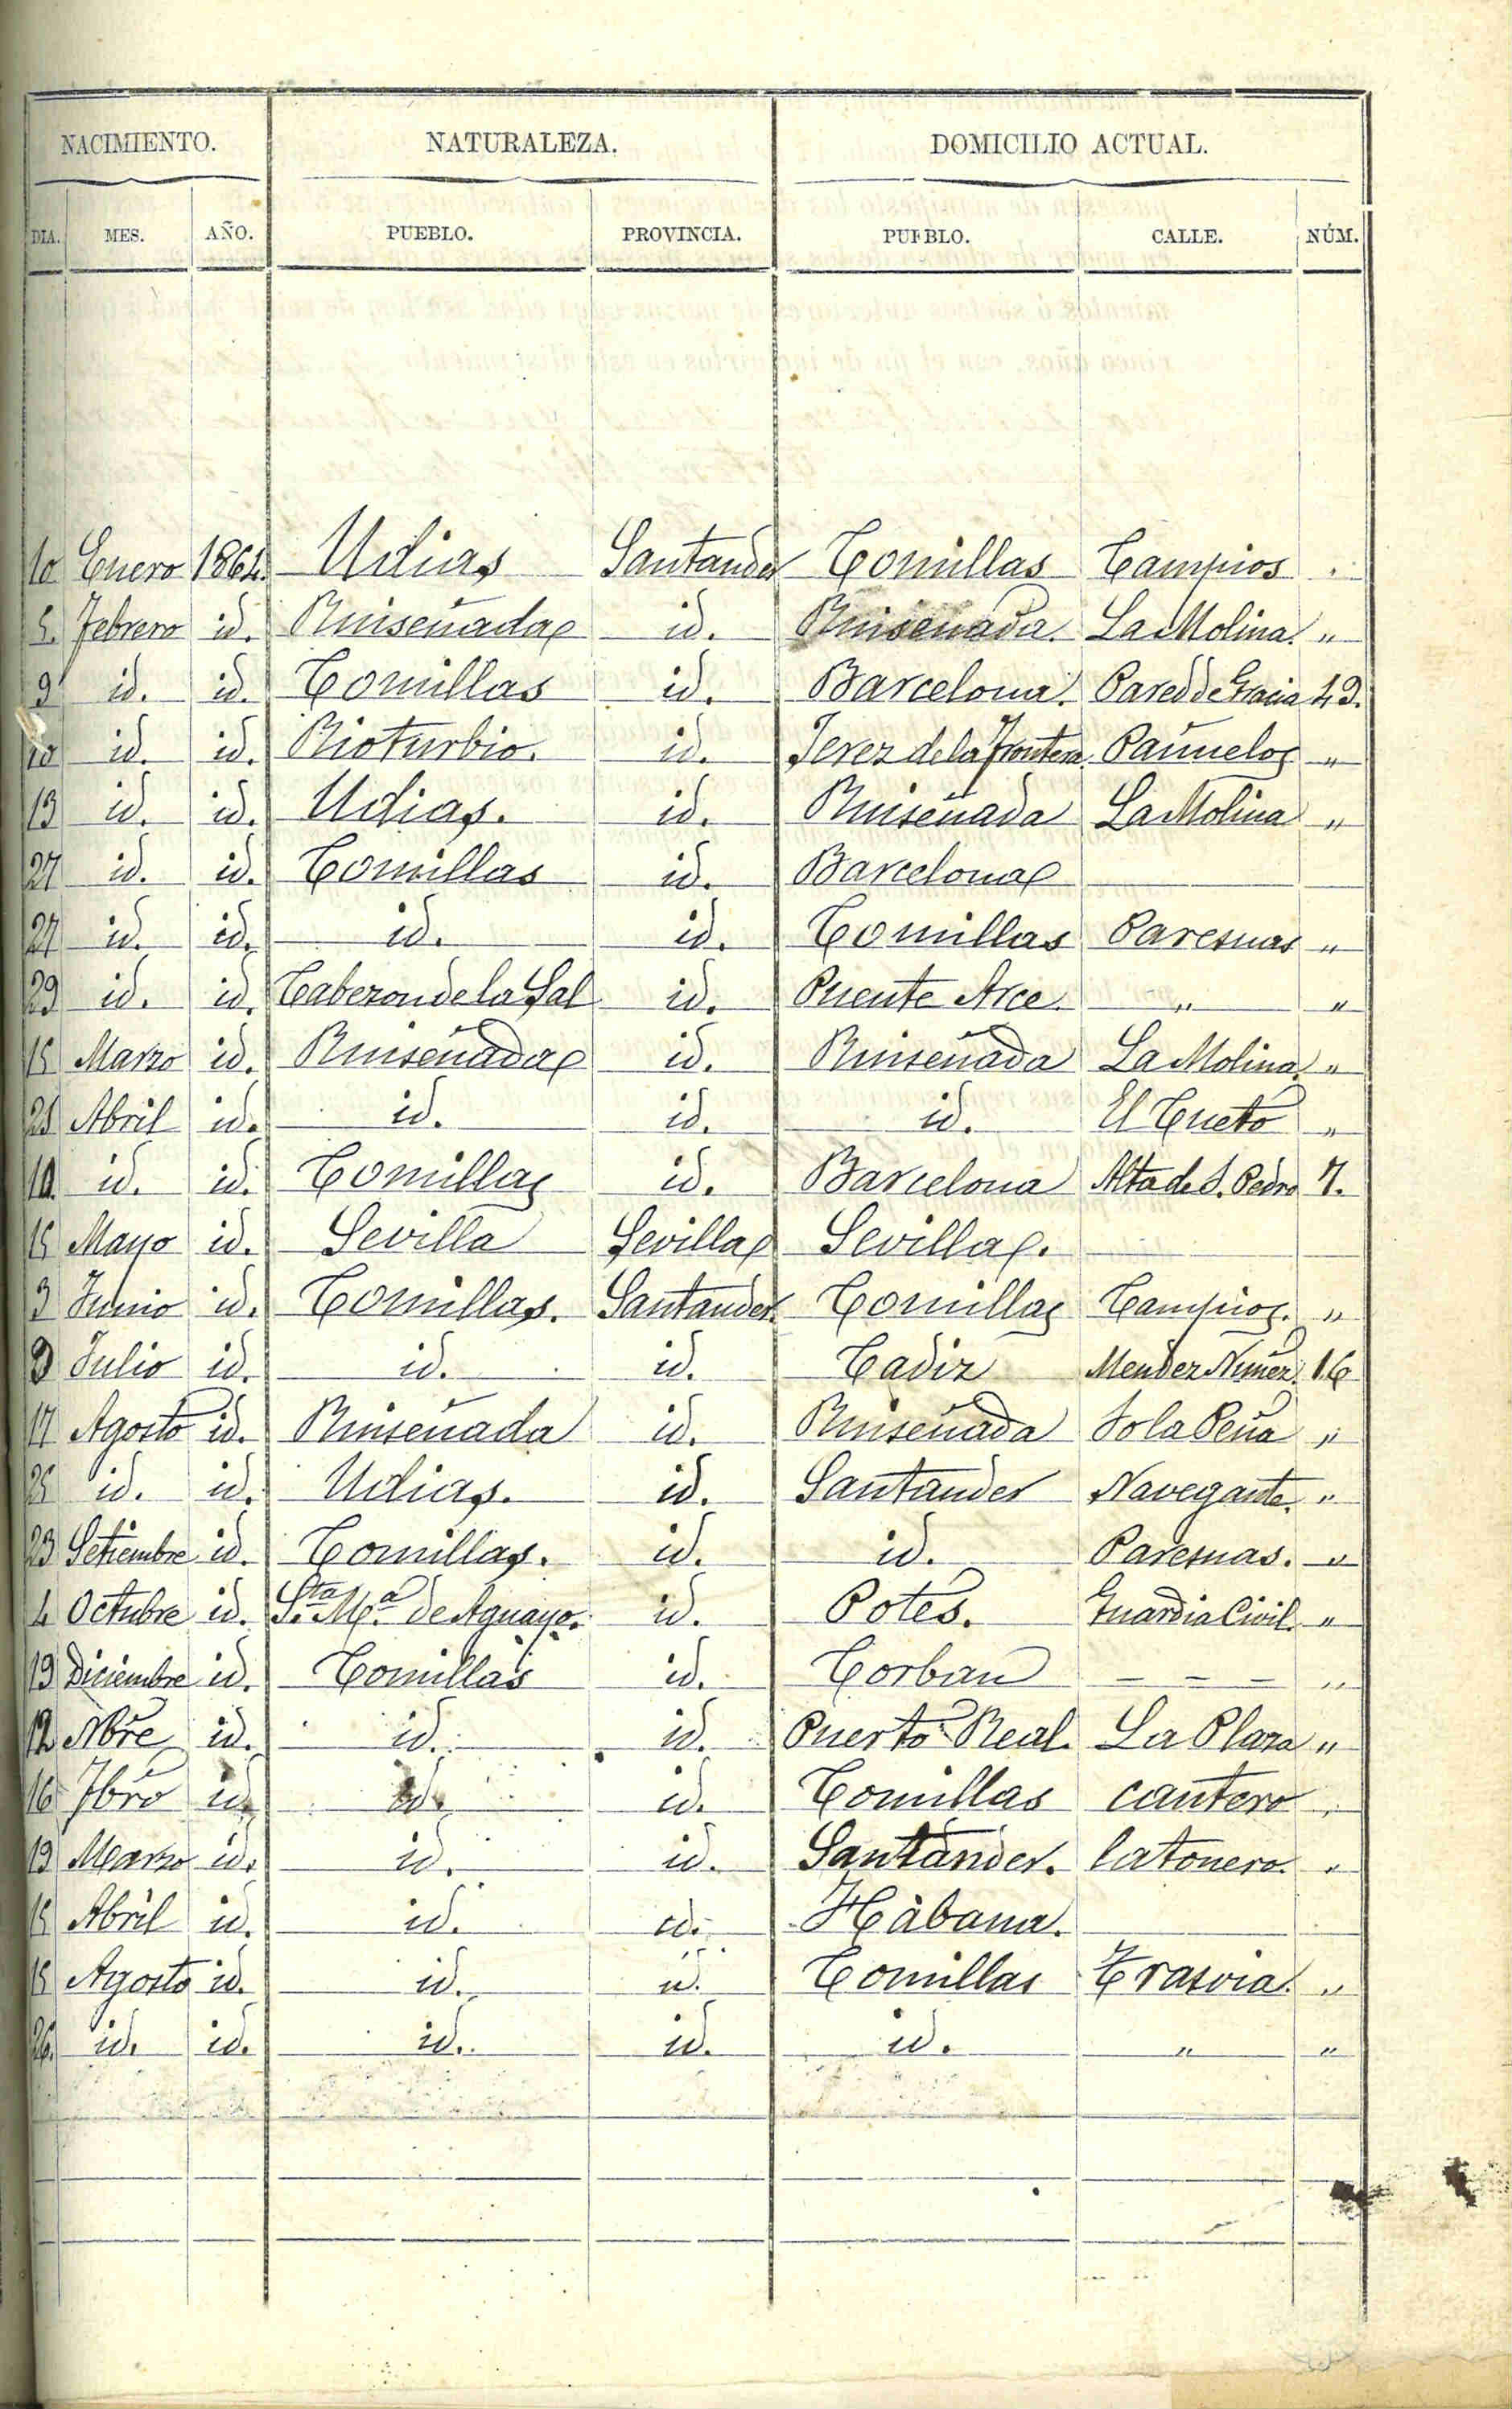 NACIMIENTO. NATURALEZA. DOMICILIO ACTUAL.
DIA. MES. AÑO. PUEBLO. PROVINCIA. PUEBLO. CALLE. NÚM.
10 Enero 1864. Udias Santander Comillas Campios
5. Febrero id. Ruiseñada id. Ruiseñada. La Molina. "
9 id. id. Comillas id. Barcelona. Pared de Gracia 43.
10 id. id. Rioturbio. id. Jerez de la Frontera. Pañuelos "
13 id. id. Udias. id. Ruiseñada La Molina "
27 id. id. Comillas id. Barcelona
27 id. id. id. id. Comillas Paresnas "
29 id. id. Cabezon de la Sal id. Puente Arce. " "
15 Marzo id. Ruiseñada id. Ruiseñada La Molina. "
21 Abril id. id. id. id. El Cueto "
id. id. Comillas id. Barcelona Alta de S. Pedro 7.
15 Mayo id. Sevilla Sevilla Sevilla.
3 Junio id. Comillas. Santander. Comillas Campios. "
Julio id. id. id. Cadiz Mendez Nuñez. 16
17 Agosto id. Ruiseñada id. Ruiseñada So la Peña "
25 id. id. Udias. id. Santander Navegante. "
23 Setiembre id. Comillas. id. id. Paresnas. "
4 Octubre id. Sta. Ma. de Aguayo. id. Potes. Guardia Civil. "
19 Diciembre id. Comillas id. Corban – – – "
12 Nbre id. id. id. Puerto Real. La Plaza "
16 id. id. id. Comillas cantero "
19 Marzo id. id. id. Santander. latonero. "
15 Abril id. id. id. Hàbana.
15 Agosto id. id. id. Comillas Trasvia. "
26. id. id. id. id. id. " "